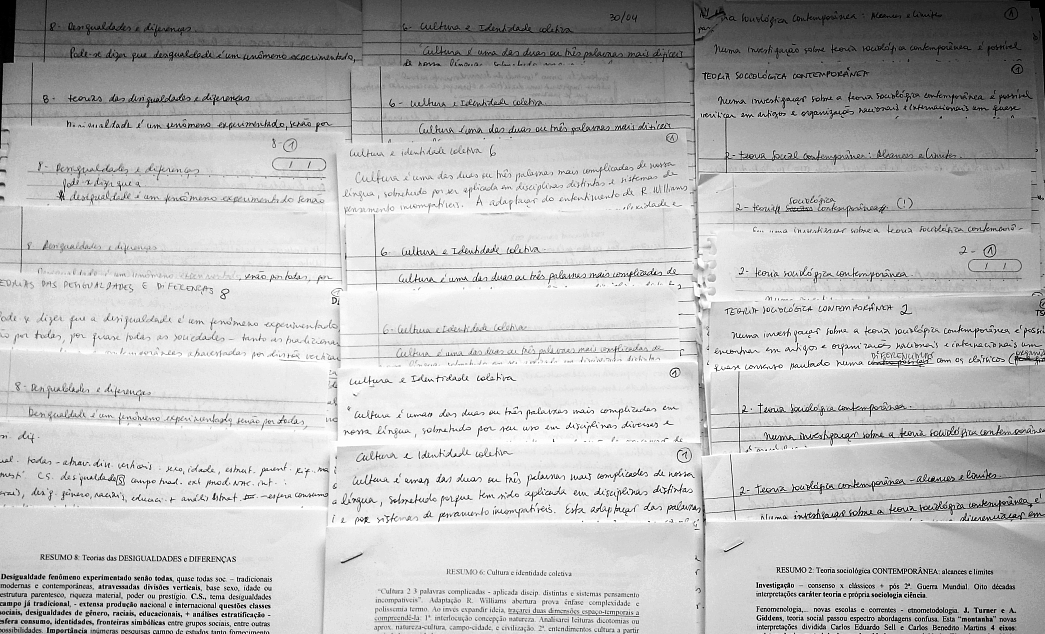 8- Desigualdades e diferenças
Pode-se dizer que desigualdade é um fenômeno experimentado,
8- teorias das desigualdades e diferenças
desigualdade é um fenômeno experimentado, senão por
8-1
8- Desigualdades e diferenças
Pode-se dizer que a
desigualdade é um fenômeno experimentado senão
8 Desigualdades e diferenças
senão por todas, por
DAS DESIGUALDADES E DIFERENÇAS 8
dizer que a desigualdade é um fenômeno experimentado
por todas, por quase todas as sociedades - tanto as tradicionais
atravessadas por divisões verticais
8- Desigualdades e diferenças
Desigualdade é um fenômeno experimentado senão por todas,
RESUMO 8: Teorias das DESIGUALDADES e DIFERENÇAS
Desigualdade fenômeno experimentado senão todas, quase todas soc. – tradicionais
modernas e contemporâneas, atravessadas divisões verticais, base sexo, idade ou
estrutura parentesco, riqueza material, poder ou prestígio. C.S., tema desigualdades
campo já tradicional, - extensa produção nacional e internacional questões classes
sociais, desigualdades de gênero, raciais, educacionais, + análises estratificação -
esfera consumo, identidades, fronteiras simbólicas entre grupos sociais, entre outras
possibilidades. Importância inúmeras pesquisas campo de estudos tanto fornecimento
30/04
6- Cultura e Identidade coletiva
Cultura é uma das duas ou três palavras mais difíceis
6- Cultura e Identidade coletiva
Cultura é uma das duas ou três palavras mais difíceis
1
Cultura e identidade coletiva 6
Cultura é uma das duas ou três palavras mais complicadas de nossa
língua, sobretudo por ser aplicada em disciplinas distintas e sistemas de
pensamento incompatíveis. A adaptação do entendimento de R Williams
6- Cultura e Identidade coletiva
Cultura é uma das duas ou três palavras mais complicadas de
6- Cultura e Identidade coletiva
Cultura é uma das duas ou três palavras mais complicadas de
Cultura e Identidade coletiva 1
"Cultura é uma das duas ou três palavras mais complicadas em
nossa língua, sobretudo por seu uso em disciplinas diversas e
Cultura e Identidade coletiva 1
Cultura é uma das duas ou três palavras mais complicadas de nossa
língua, sobretudo porque tem sido aplicada em disciplinas distintas
e por sistemas de pensamento incompatíveis. Esta adaptação das palavras
RESUMO 6: Cultura e identidade coletiva
"Cultura 2 3 palavras complicadas - aplicada discip. distintas e sistemas pensamento
incompatíveis". Adaptação R. Williams abertura prova ênfase complexidade e
polissemia termo. Ao invés expandir ideia, traçarei duas dimensões espaço-temporais a
compreendê-la: 1ª interlocução concepção natureza. Analisarei leituras dicotomias ou
aprox. natureza-cultura, campo-cidade, e civilização. 2ª entendimentos cultura a partir
sociológica contemporânea: Alcances e limites 1
Numa investigação sobre teoria sociológica contemporânea é possível
TEORIA SOCIOLÓGICA CONTEMPORÂNEA 1
Numa investigação sobre a teoria sociológica contemporânea é possível
verificar em artigos e organizações nacionais e internacionais um quase
2- teoria social contemporânea: Alcances e limites.
sociológica
2- teoria contemporânea (!)
uma investigação sobre a teoria sociológica
2- 1
2- teoria sociológica contemporânea
TEORIA SOCIOLÓGICA CONTEMPORÂNEA 2
Numa investigação sobre a teoria sociológica contemporânea é
encontrar em artigos e organizações nacionais e internacionais um
DIFERENCIAÇÃO
quase consenso pautado numa com os clássicos
2- Teoria sociológica contemporânea.
Numa investigação sobre a teoria sociológica contemporânea
2- Teoria sociológica contemporânea - alcances e limites.
Numa investigação sobre a teoria sociológica contemporânea, é
RESUMO 2: Teoria sociológica CONTEMPORÂNEA: alcances e limites
Investigação – consenso x clássicos + pós 2ª. Guerra Mundial. Oito décadas
interpretações caráter teoria e própria sociologia ciência.
Fenomenologia,... novas escolas e correntes - etnometodologia. J. Turner e A.
Giddens, teoria social passou espectro abordagens confusa. Esta "montanha" novas
interpretações dividida Carlos Eduardo Sell e Carlos Benedito Martins 4 eixos: